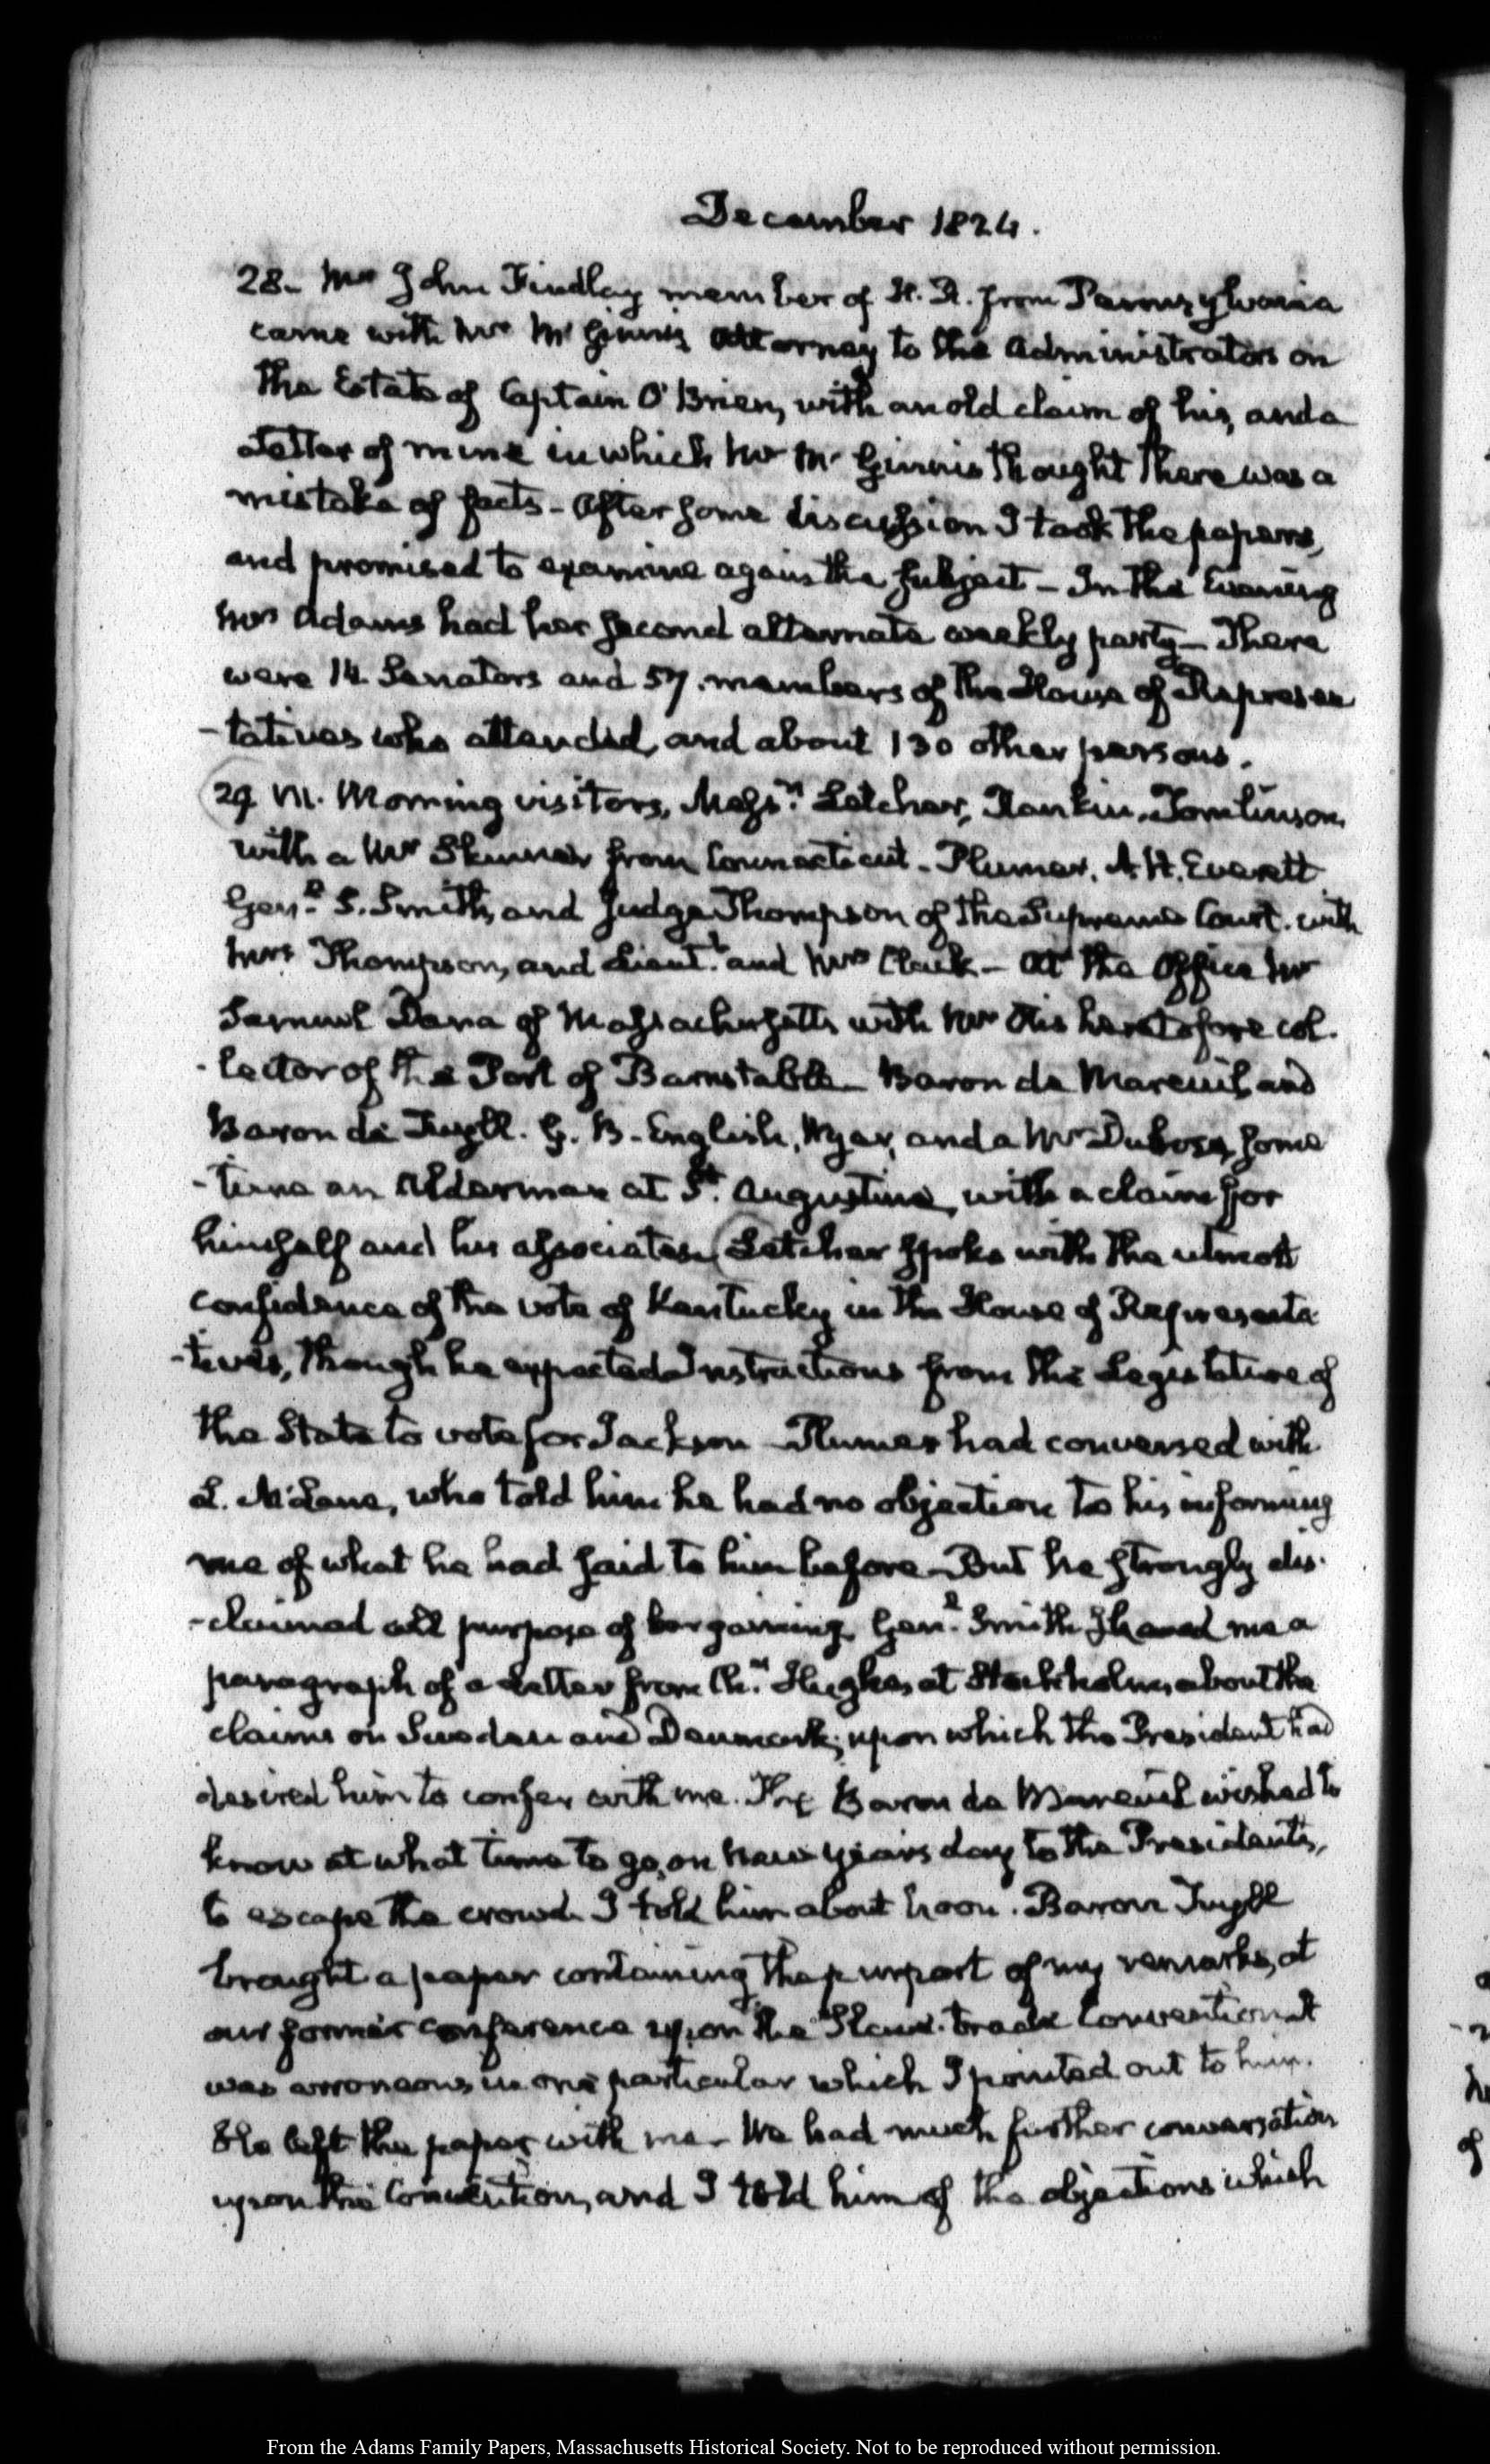 December 1824.
28. Mr John Findlay member of H. R. from Pennsylvania
came with Mr McGinnis Attorney to the Administrators on
the Estate of Captain O'Brien, with an old claim of his, and a
Letter of mine in which Mr McGinnis thought there was a
mistake of facts - After some discussion I took the papers,
and promised to examine again the subject - In the Evening
Mrs Adams had her second alternate weekly party - There
were 14 Senators and 57. members of the House of Represen
-tatives who attended, and about 130 other persons.
29. VI. Morning visitors, Messrs. Letcher, Rankin, Tomlinson,
with a Mr Skinner from Connecticut - Plumer, A. H. Everett
Genl. S. Smith, and Judge Thompson of the Supreme Court. with
Mrs Thompson, and Lieutt. and Mrs Clack - At the Office Mr
Samuel Dana of Massachusetts with Mr Otis heretofore col-
-lector of the Port of Barnstable - Baron de Mareuil and
Baron de Tuyll. G. B. English, Wyer, and a Mr Dubose, some
-time an Alderman at St. Augustine, with a claim for
himself and his associates. Letcher spoke with the utmost
confidence of the vote of Kentucky in the House of Representa
-tives, though he expected Instructions from the Legislature of
the State to vote for Jackson - Plumer had conversed with
L. McLane, who told him he had no objection to his informing
me of what he had said to him before - But he strongly dis-
-claimed all purpose of bargaining. Genl. Smith shewed me a
paragraph of a Letter from Chr. Hughes at Stockholm, about the
claims on Sweden and Denmark; upon which the President had
desired him to confer with me. The Baron de Mareuil wished to
know at what time to go, on New years day to the Presidents,
to escape the crowd. I told him about noon. Baron Tuyll
brought a paper containing the purport of my remarks, at
our former conference upon the Slave-trade Convention It
was erroneous in one particular which I pointed out to him.
He left the paper with me - We had much further conversation
upon the Convention, and I told him of the objections which
From the Adams Family Papers, Massachusetts Historical Society. Not to be reproduced without permission.